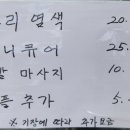 리 염색 20.
니큐어 25.
발 마사지 10.
 추가 5.
※ 기장에 따라 추가요금